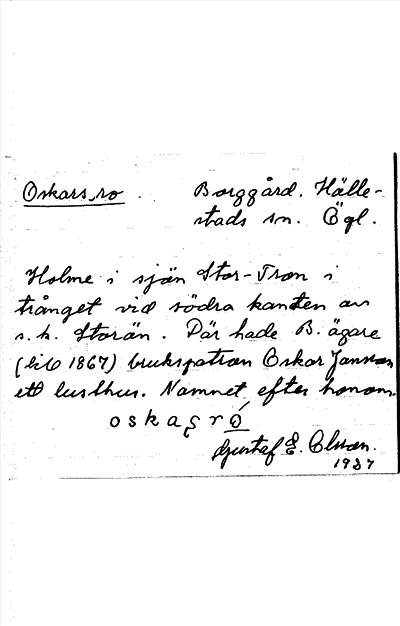 Oskars ro
Borggård. Hälle-
stads sn. Ögl.
Holme i sjön Stor-Tron i
trånget vid södra kanten av
s. k. Storån. Där hade B. ägare
(till 1867) brukspatron Oskar Jansson
ett lusthus. Namnet efter honom.
oskaʂ ró
Gustaf E. Olsson.
1937